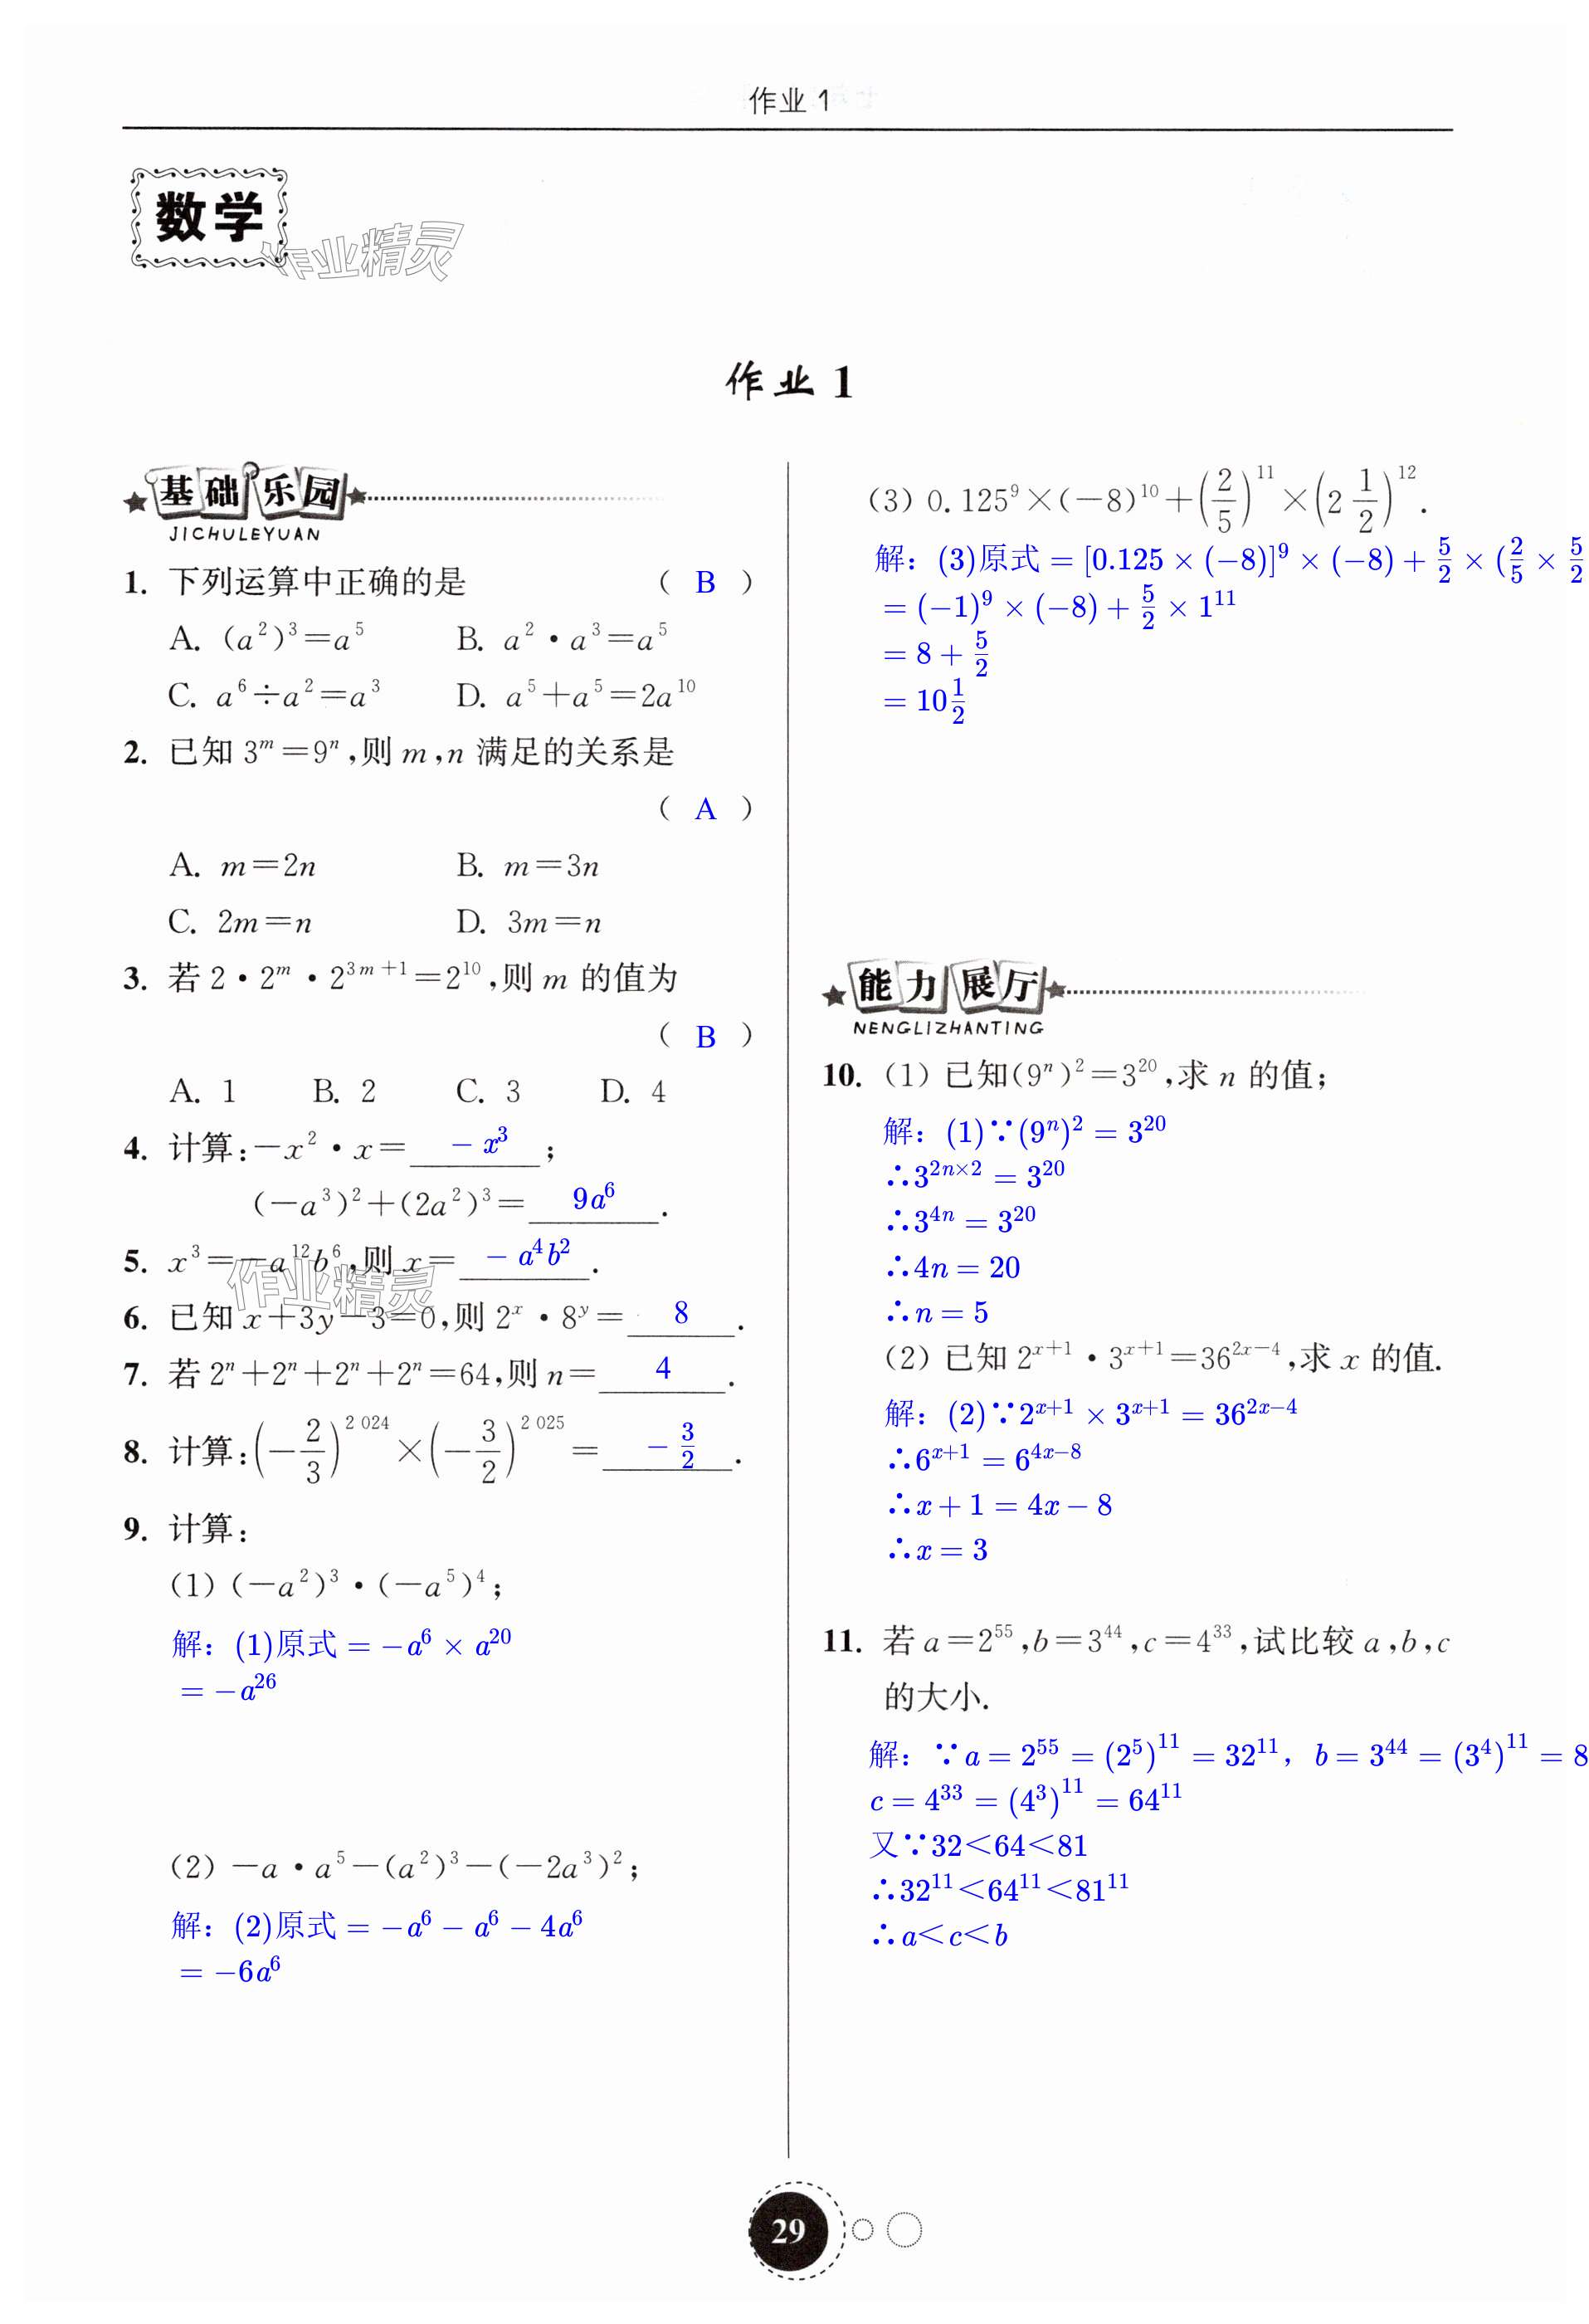 作业 1
数学
作业精灵
作业 1
基础乐园
JICHULEYUAN
1. 下列运算中正确的是 ( B )
A. (a²)³=a⁵ B. a²·a³=a⁵
C. a⁶÷a²=a³ D. a⁵+a⁵=2a¹⁰
2. 已知 3ᵐ=9ⁿ,则 m,n 满足的关系是
( A )
A. m=2n B. m=3n
C. 2m=n D. 3m=n
3. 若 2·2ᵐ·2³ᵐ⁺¹=2¹⁰,则 m 的值为
( B )
A. 1 B. 2 C. 3 D. 4
4. 计算:−x²·x= −x³ ;
(−a³)²+(2a²)³= 9a⁶ .
5. x³=−a¹²b⁶,则 x= −a⁴b² .
作业精灵
6. 已知 x+3y−3=0,则 2ˣ·8ʸ= 8 .
7. 若 2ⁿ+2ⁿ+2ⁿ+2ⁿ=64,则 n= 4 .
8. 计算:(−2/3)^2 024×(−3/2)^2 025= −3/2 .
9. 计算:
(1) (−a²)³·(−a⁵)⁴;
解：(1)原式=−a⁶×a²⁰
=−a²⁶
(2) −a·a⁵−(a²)³−(−2a³)²;
解：(2)原式=−a⁶−a⁶−4a⁶
=−6a⁶
(3) 0.125⁹×(−8)¹⁰+(2/5)¹¹×(2 1/2)¹².
解：(3)原式=[0.125×(−8)]⁹×(−8)+5/2×(2/5×5/2
=(−1)⁹×(−8)+5/2×1¹¹
=8+5/2
=10 1/2
能力展厅
NENGLIZHANTING
10. (1) 已知(9ⁿ)²=3²⁰,求 n 的值;
解：(1)∵(9ⁿ)²=3²⁰
∴3^(2n×2)=3²⁰
∴3⁴ⁿ=3²⁰
∴4n=20
∴n=5
(2) 已知 2ˣ⁺¹·3ˣ⁺¹=36^(2x−4),求 x 的值.
解：(2)∵2ˣ⁺¹×3ˣ⁺¹=36^(2x−4)
∴6ˣ⁺¹=6^(4x−8)
∴x+1=4x−8
∴x=3
11. 若 a=2⁵⁵,b=3⁴⁴,c=4³³,试比较 a,b,c
的大小.
解：∵a=2⁵⁵=(2⁵)¹¹=32¹¹，b=3⁴⁴=(3⁴)¹¹=8
c=4³³=(4³)¹¹=64¹¹
又∵32<64<81
∴32¹¹<64¹¹<81¹¹
∴a<c<b
29